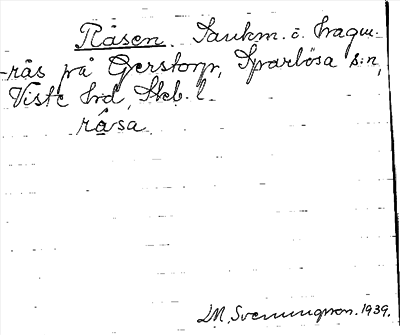 Råsen. Sankm. o. hagm-
-rås på Gerstorp, Sparlösa s:n,
Viste hrd, Skb. l.
råsa
M. Svenungsson. 1939.